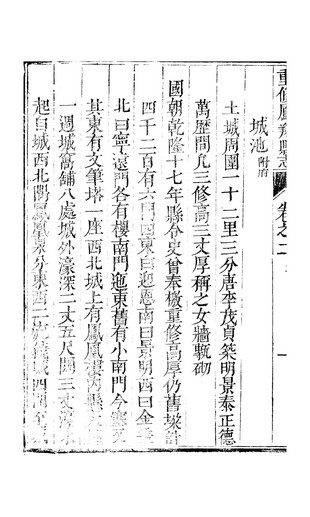 重修鳳翔縣志
卷之二
城池 附府
土城周圍一十二里三分唐李茂貞築明景泰正德
萬歷間凡三修高三丈厚稱之女牆甎砌
國朝乾隆十七年縣令史曾奉檄重修高厚仍舊垜計
四千二百有六門四東曰迎恩南曰景明西曰金
北曰寧遠門各有樓南門迤東舊有小南門今
其東有文筆塔一座西北城上有鳳凰
一週城窩舖八處城外濠深二丈五尺闊三丈
起自城西北隅鳳凰泉分東西二